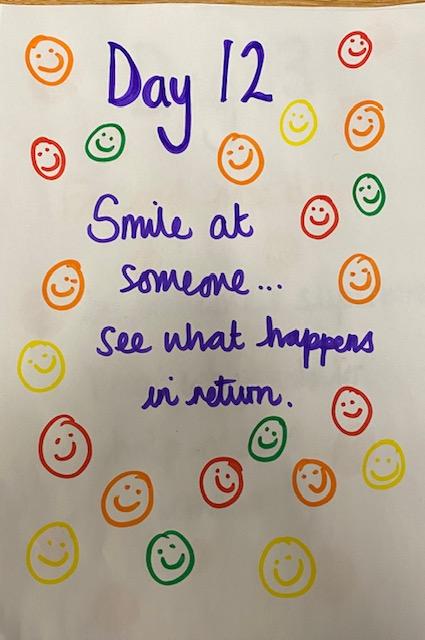 Day 12
Smile at
someone...
see what happens
in return.